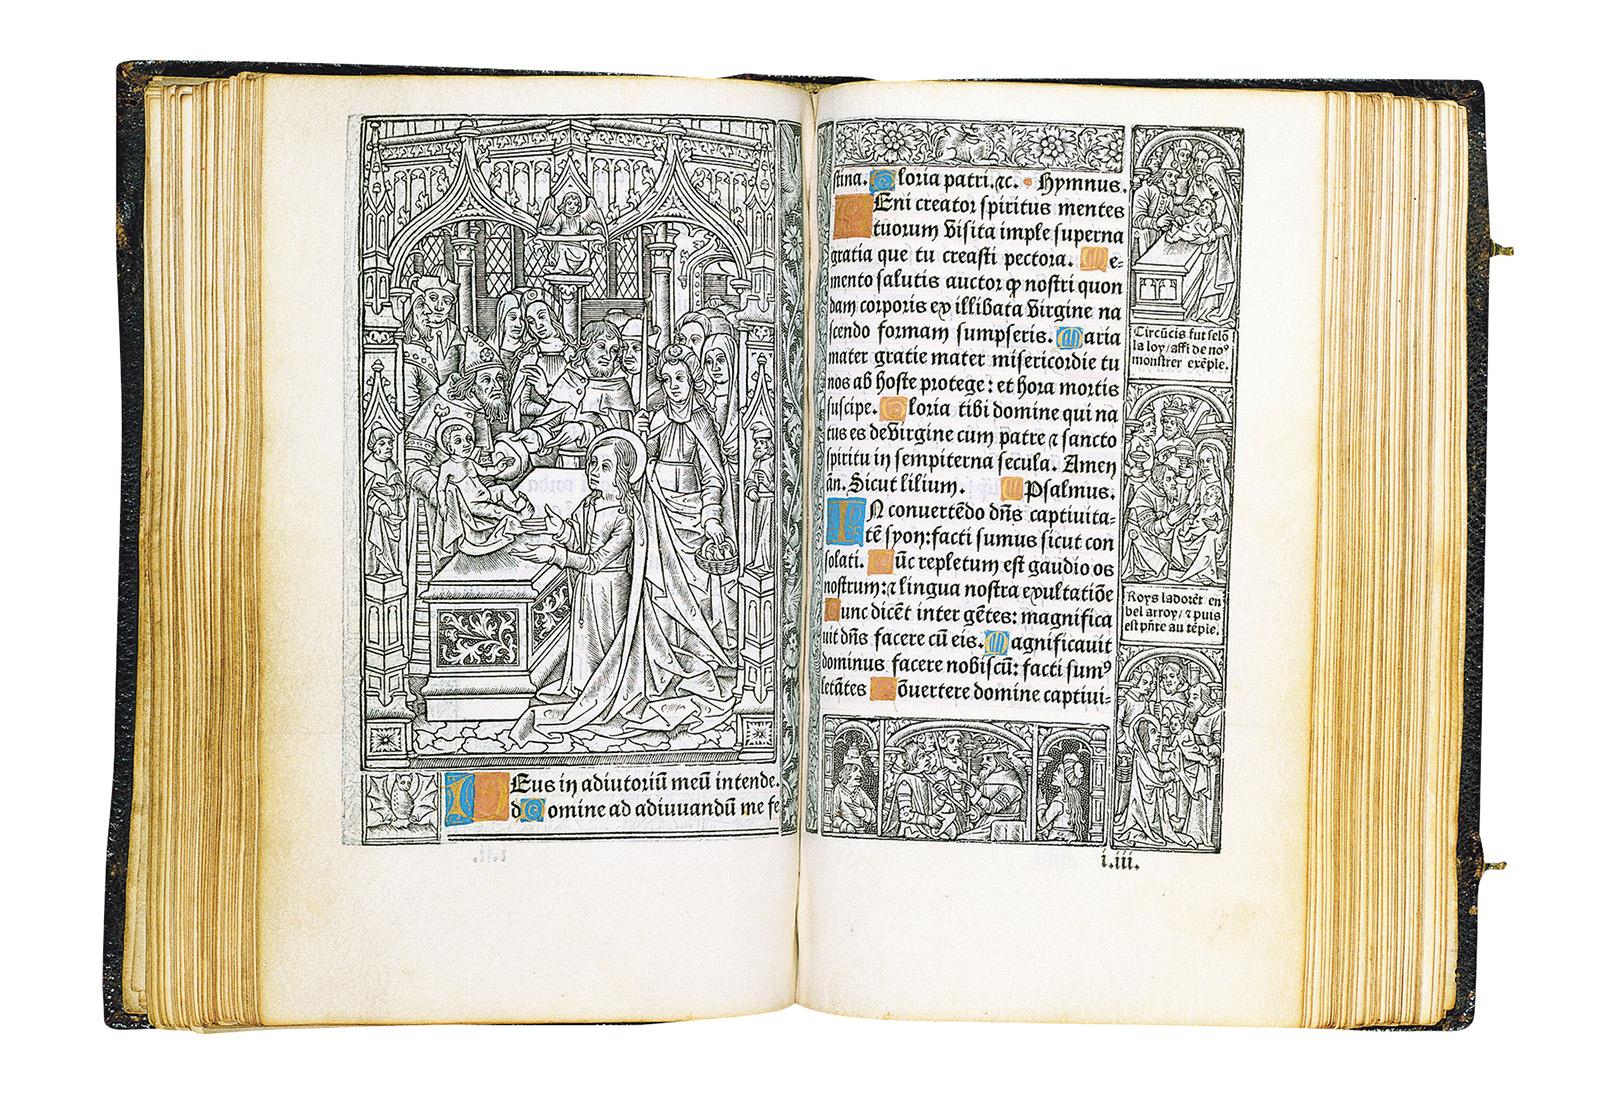 Eus in adiutoriū meū intende.
domine ad adiuuandū me fe
stina. Gloria patri. ⁊c. Hymnus.
VEni creator spiritus mentes
tuorum visita imple superna
gratia que tu creasti pectora. Me-
mento salutis auctor ꝙ nostri quon
dam corporis ex illibata virgine na
scendo formam sumpseris. Maria
mater gratie mater misericordie tu
nos ab hoste protege: et hora mortis
suscipe. Gloria tibi domine qui na
tus es de virgine cum patre ⁊ sancto
spiritu in sempiterna secula. Amen
ān. Sicut lilium. Psalmus.
IN conuertēdo dn̄s captiuita-
tē syon: facti sumus sicut con
solati. Tūc repletum est gaudio os
nostrum: ⁊ lingua nostra exultatiōe
Tunc dicēt inter gētes: magnifica
uit dn̄s facere cū eis. Magnificauit
dominus facere nobiscū: facti sumꝰ
letātes Cōuertere domine captiui-
i.iii.
Circūcis fut selō
la loy/ affi de noꝰ
monstrer exēple.
Roys ladorēt en
bel arroy/ ⁊ puis
est pn̄te au tēple.